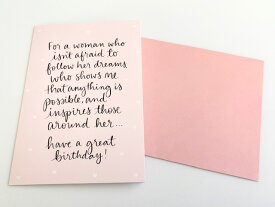 For a woman who
isn't afraid to
follow her dreams,
who shows me
that anything is
possible, and
inspires those
around her...
have a great
birthday!